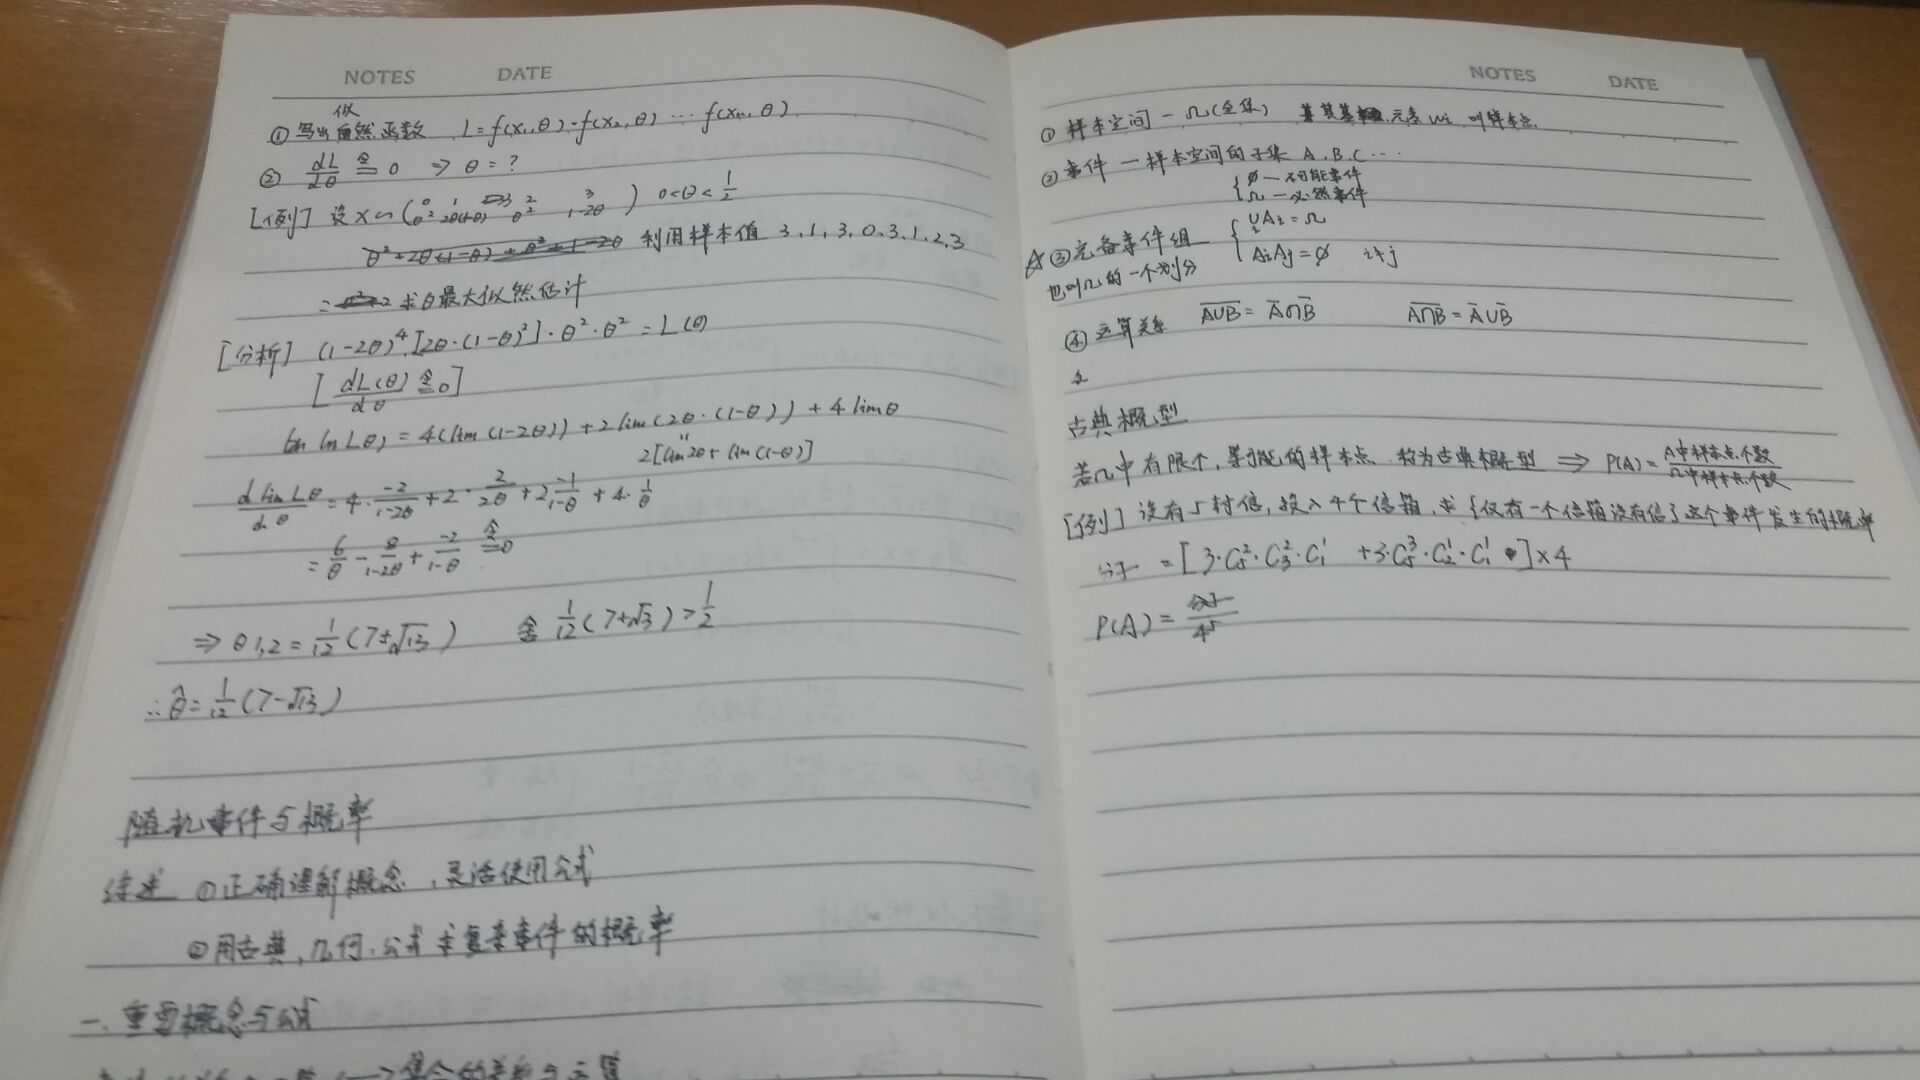 NOTES DATE
似
① 写出自然函数 L=f(x₁,θ)·f(x₂,θ)…f(xₙ,θ)
② dL/dθ ≙ 0 ⇒ θ=?
[例] 设X~(0 1 2 3 / θ² 2θ(1-θ) θ² 1-2θ) 0<θ<1/2
θ²+2θ(1-θ)+θ²+1-2θ 利用样本值 3,1,3,0,3,1,2,3
求θ最大似然估计
[分析] (1-2θ)⁴·[2θ·(1-θ)²]·θ²·θ²=L(θ)
[dL(θ)/dθ ≙ 0]
ln Lθ)=4(lim(1-2θ))+2lim(2θ·(1-θ))+4limθ
2[lim2θ+lim(1-θ)]
d lim Lθ/dθ=4·-2/1-2θ+2·2/2θ+2·-1/1-θ+4·1/θ
=6/θ-8/1-2θ+-2/1-θ ≙0
⇒ θ1,2=1/12(7±√13) 舍 1/12(7+√13)>1/2
∴θ̂=1/12(7-√13)
随机事件与概率
综述 ①正确理解概念,灵活使用公式
②用古典,几何,公式求复杂事件的概率
一.重要概念与公式
集合的关系与运算
NOTES DATE
① 样本空间-Ω(全集) 其 元素ωi 叫样本点
② 事件-样本空间的子集 A,B,C…
{∅-不可能事件
Ω-必然事件
③完备事件组 {∪Ai=Ω
也叫Ω的一个划分 AiAj=∅ i≠j
④ 运算关系 A∪B‾=A̅∩B̅ A∩B‾=A̅∪B̅
古典概型
若Ω中有限个,等可能的样本点 称为古典概型 ⇒ P(A)=A中样本点个数/Ω中样本点个数
[例] 设有5封信,投入4个信箱,求{仅有一个信箱没有信}这个事件发生的概率
分子=[3·C₅²·C₃²·C₁¹+3·C₅³·C₂¹·C₁¹]×4
P(A)=分子/4⁵